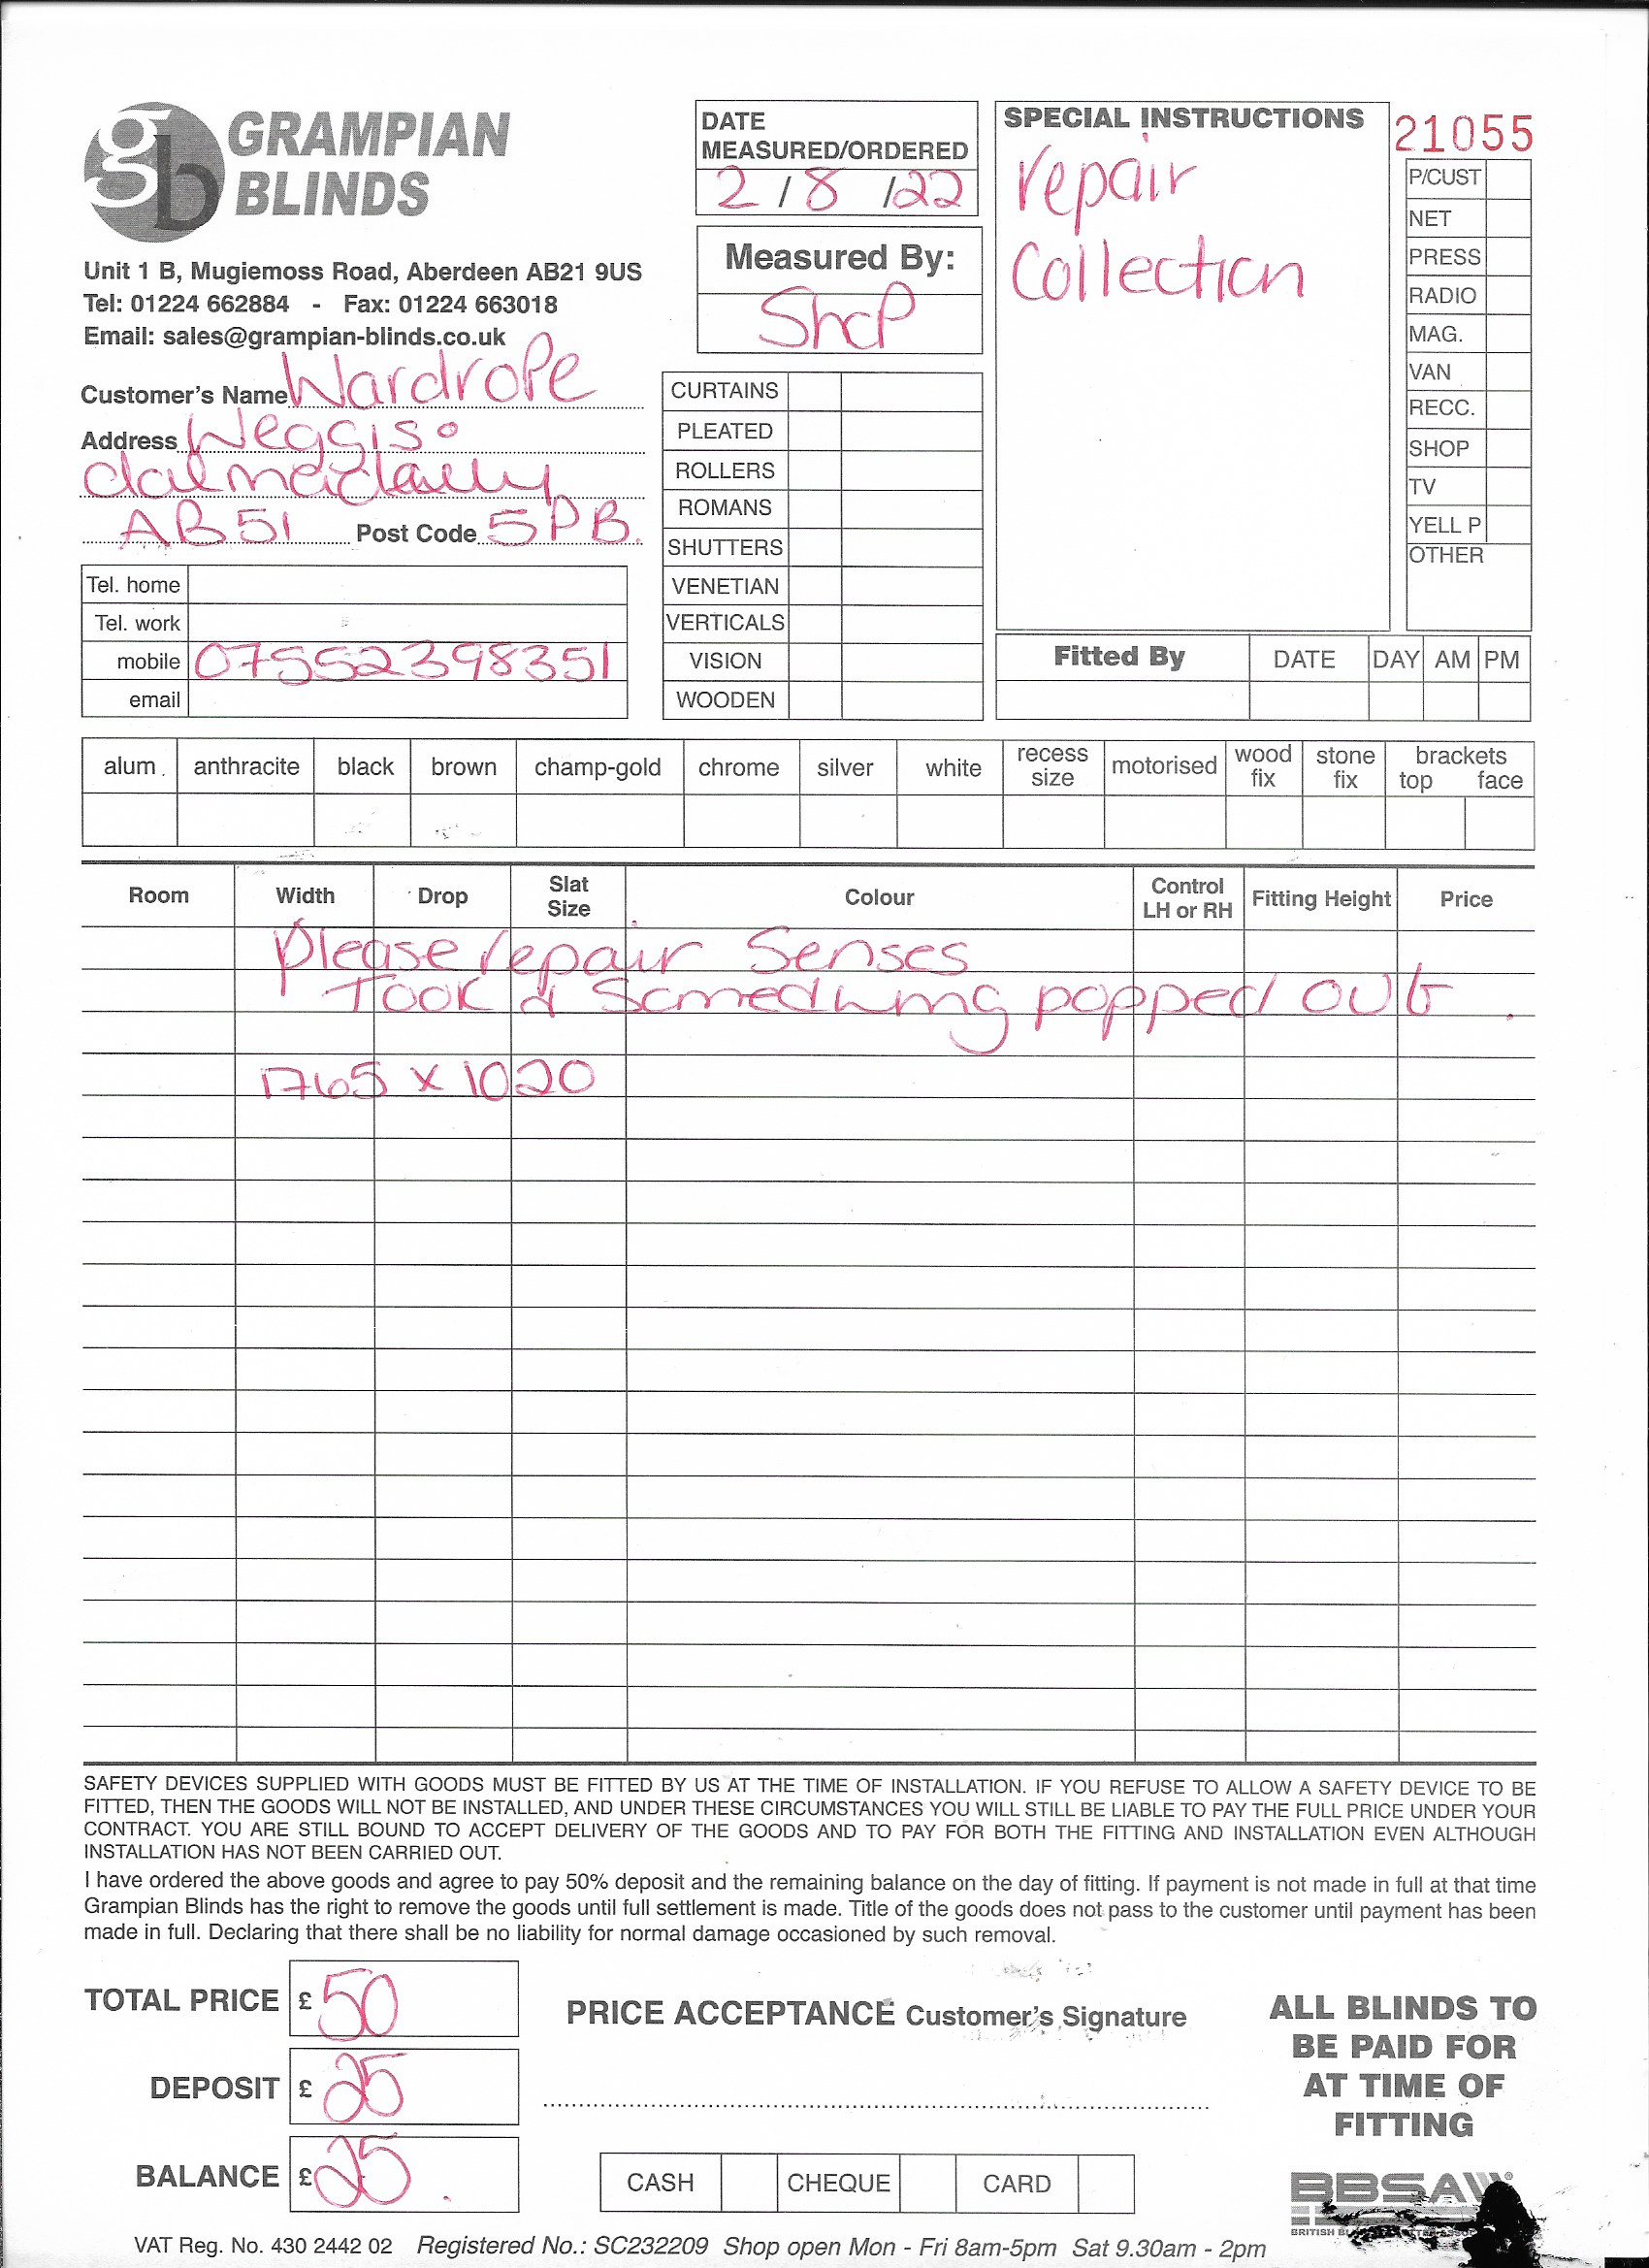 gb GRAMPIAN BLINDS
Unit 1 B, Mugiemoss Road, Aberdeen AB21 9US
Tel: 01224 662884 - Fax: 01224 663018
Email: sales@grampian-blinds.co.uk
Customer's Name Wardrope
Address
AB51 Post Code 5PB.
Tel. home
Tel. work
mobile 07552398351
email
DATE
MEASURED/ORDERED
2 / 8 /22
Measured By:
Shop
CURTAINS
PLEATED
ROLLERS
ROMANS
SHUTTERS
VENETIAN
VERTICALS
VISION
WOODEN
SPECIAL INSTRUCTIONS
repair
Collection
21055
P/CUST
NET
PRESS
RADIO
MAG.
VAN
RECC.
SHOP
TV
YELL P
OTHER
Fitted By DATE DAY AM PM
alum. anthracite black brown champ-gold chrome silver white recess size motorised wood fix stone fix brackets top face
Room Width Drop Slat Size Colour Control LH or RH Fitting Height Price
Please repair Senses
Took & popped out.
1765 x 1020
SAFETY DEVICES SUPPLIED WITH GOODS MUST BE FITTED BY US AT THE TIME OF INSTALLATION. IF YOU REFUSE TO ALLOW A SAFETY DEVICE TO BE
FITTED, THEN THE GOODS WILL NOT BE INSTALLED, AND UNDER THESE CIRCUMSTANCES YOU WILL STILL BE LIABLE TO PAY THE FULL PRICE UNDER YOUR
CONTRACT. YOU ARE STILL BOUND TO ACCEPT DELIVERY OF THE GOODS AND TO PAY FOR BOTH THE FITTING AND INSTALLATION EVEN ALTHOUGH
INSTALLATION HAS NOT BEEN CARRIED OUT.
I have ordered the above goods and agree to pay 50% deposit and the remaining balance on the day of fitting. If payment is not made in full at that time
Grampian Blinds has the right to remove the goods until full settlement is made. Title of the goods does not pass to the customer until payment has been
made in full. Declaring that there shall be no liability for normal damage occasioned by such removal.
TOTAL PRICE £ 50
DEPOSIT £ 25
BALANCE £ 25.
PRICE ACCEPTANCE Customer's Signature
CASH CHEQUE CARD
ALL BLINDS TO
BE PAID FOR
AT TIME OF
FITTING
BBSA
BRITISH
VAT Reg. No. 430 2442 02 Registered No.: SC232209 Shop open Mon - Fri 8am-5pm Sat 9.30am - 2pm